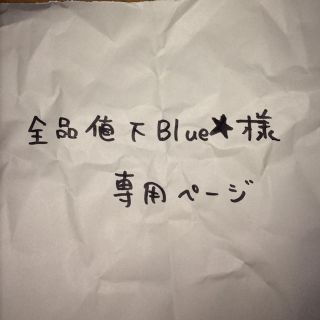 全品値下Blue★様
専用ページ